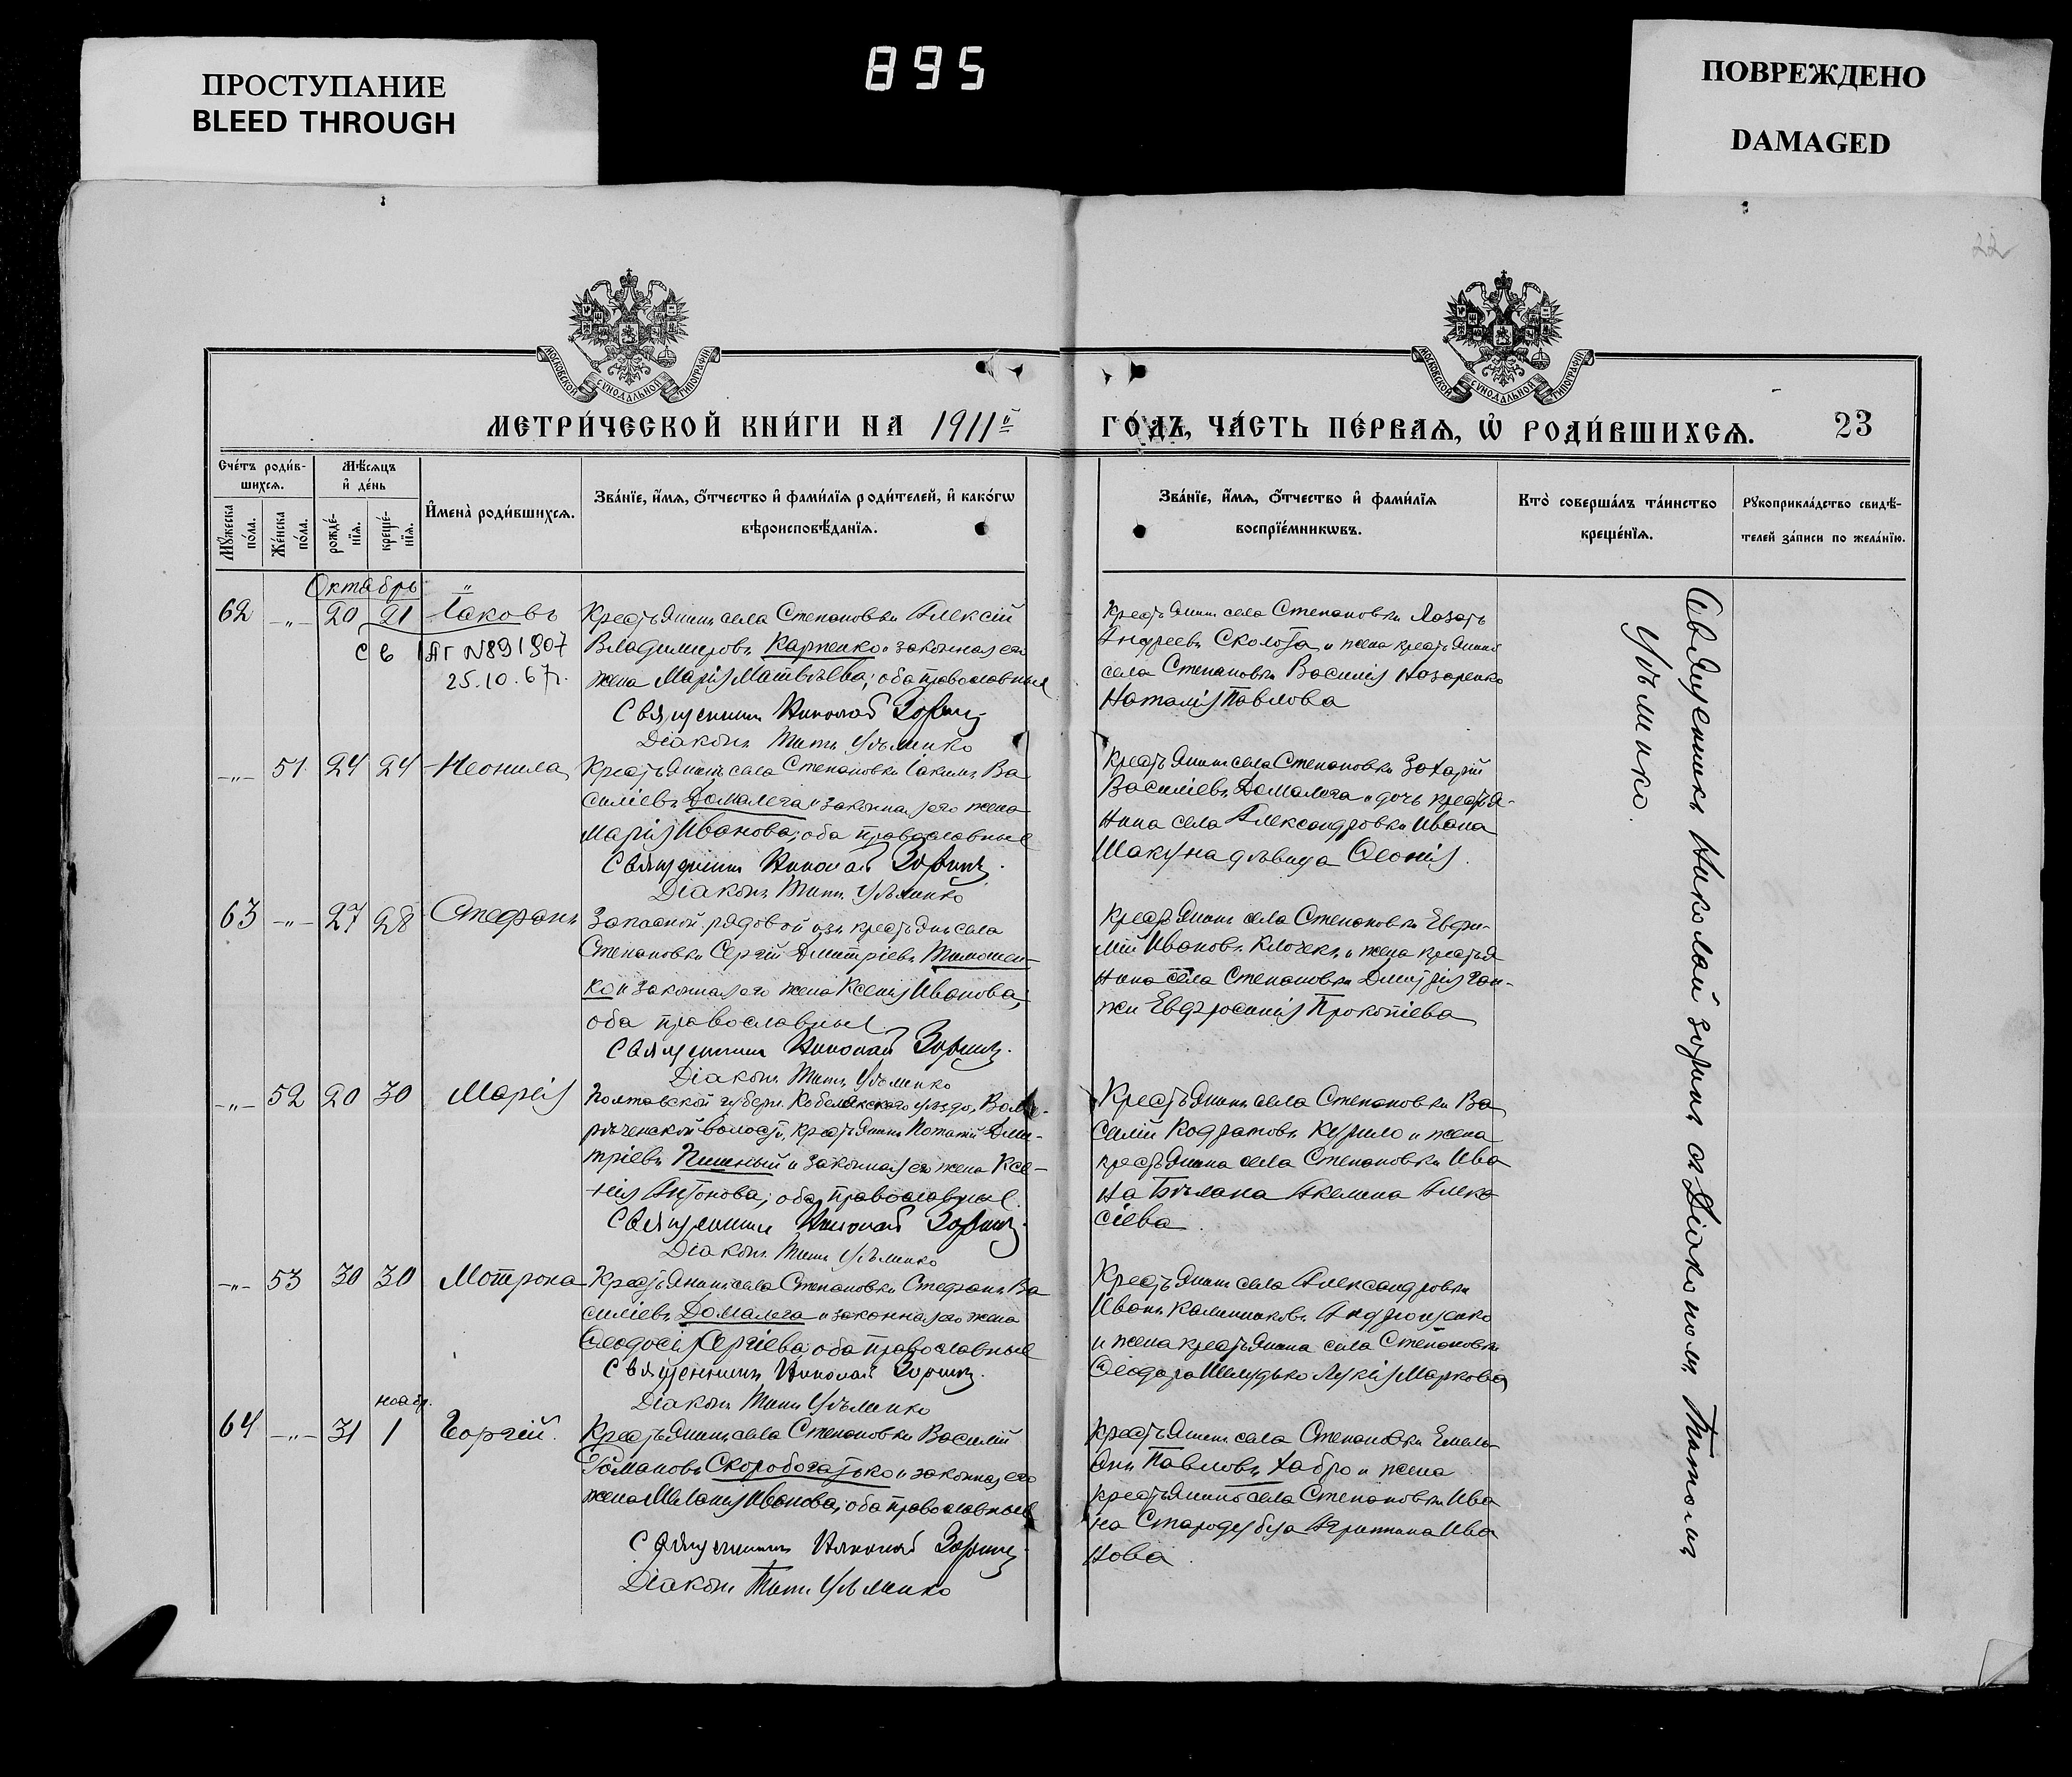 ПРОСТУПАНИЕ
BLEED THROUGH
895
ПОВРЕЖДЕНО
DAMAGED
22
МОСКОВСКОЙ СѴНОДАЛЬНОЙ ТИПОГРАФІИ
МОСКОВСКОЙ СѴНОДАЛЬНОЙ ТИПОГРАФІИ
МЕТРИ́ЧЕСКОЙ КНИ́ГИ НА 1911й
ГО́ДЪ, ЧА́СТЬ ПЕ́РВАѦ, Ѡ РОДИ́ВШИХСѦ. 23
Сче́тъ роди́в-
шихсѧ.
Мѣ́сѧцъ
и де́нь
Му́жеска по́ла.
Же́нска по́ла.
рожде́-нїѧ.
креще́-нїѧ.
Имена̀ роди́вшихсѧ.
Зва́нїе, и́мѧ, о́тчество и фами́лїѧ роди́телей, и како́гѡ
вѣроисповѣ́данїѧ.
Зва́нїе, и́мѧ, о́тчество и фами́лїѧ
воспрїе́мникѡвъ.
Кто̀ соверша́лъ та́инство
креще́нїѧ.
Рꙋкоприкла́дство свидѣ́-
телей за́писи по жела́нїю.
Октябрь "
62 -"- 20 21 Іаковъ
с в ІЯГ №891907
25.10.67г.
Крестьянинъ села Степановки Алексій
Владимировъ Карпенко и законная его
жена Марія Матвѣева; оба православные
Священникъ Николай Зоринъ
Діаконъ Титъ Уѣменко
Крестьянинъ села Степановки Лазарь
Андреевъ Сколота и жена крестьянина
села Степановки Василія Назаренко
Наталія Павлова
-"- 51 24 24 Неонила
Крестьянинъ села Степановки Іакимъ Ва
силіевъ Домалега и законная его жена
Марія Иванова; оба православные
Священникъ Николай Зоринъ.
Діаконъ Титъ Уѣменко
Крестьянинъ села Степановки Захарій
Василіевъ Домалега и дочь крестья-
нина села Александровки Ивана
Шакуна дѣвица Ѳеонія.
63 -"- 27 28 Стефанъ
Запасной рядовой изъ крестьянъ села
Степановки Сергій Дмитріевъ Тимошен-
ко и законная его жена Ксенія Иванова;
оба православные
Священникъ Николай Зоринъ.
Діаконъ Титъ Уѣменко
Крестьянинъ села Степановки Евфи-
мій Ивановъ Клочекъ и жена крестья
нина села Степановки Дмитрія Ган-
жи Евфросинія Прокопіева
-"- 52 20 30 Марія
Полтавской губерн. Кобелякского уѣзда,
рѣченской волости, крестьянинъ Потапій Дми-
тріевъ Пишный и законная его жена Ксе-
нія Антонова; оба православные.
Священникъ Николай Зоринъ.
Діаконъ Титъ Уѣменко
Крестьянинъ села Степановки Ва
силій Кодратовъ Курило и жена
крестьянина села Степановки Ива
на Бѣлана Акелина Алек
сіева
-"- 53 30 30 Мотрона
Крестьянинъ села Степановки Стефанъ Ва
силіевъ Домалега и законная его жена
Ѳеодосія Сергіева; оба православные
Священникъ Николай Зоринъ.
Діаконъ Титъ Уѣменко
Крестьянинъ села Александровки
Иванъ Калинниковъ Андрющенко
и жена крестьянина села Степановки
Ѳеодора Шелудько Лукія Маркова
ноабр.
64 -"- 31 1 Георгій.
Крестьянинъ села Степановки Василій
Романовъ Скоробогатько и законная его
жена Меланія Иванова; оба православные
Священникъ Николай Зоринъ.
Діаконъ Титъ Уѣменко
Крестьянинъ села Степановки Емель
янъ Павловъ Хабро и жена
крестьянина села Степановки Ива
на Стародубца Агрипина Ива
нова.
Священникъ Николай Зоринъ съ Діакономъ Титомъ
Уѣменко.